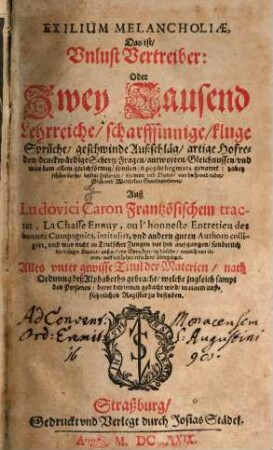 EXILIUM MELANCHOLIÆ,
Das ist/
Vnlust Vertreiber:
Oder
Zwey Tausend
Lehrreiche/ scharffsinnige/ kluge
Sprüche/ geschwinde Außschläg/ artige Hofre-
den denckwürdige Schertz/ Fragen/ antworten Gleichnussen/ vnd
was dem allem gleichförmig/ sonsten Apophthegmata genandt/
Auß
Ludovici Caron Frantzösischem trac-
tat, La Chasse Ennuy, ou l'honneste Entretien des
bonnes Compagnies, intitulirt, vnd andern guten Authorn colli-
girt, vnd was nicht in Teutscher Zungen vor hin außgangen/ sonderlich
Alles vnter gewisse Titul der Materien/ nach
Ordnung deß Alphabeths gebracht/ welche zugleich sampt
den Personen/ derer hierinnen gedacht wird/ in einem auß-
führlichen Register zu befinden.
Ad Convent. Monacensem
Ord: Eremit S: Augustini
16 90.
Straßburg/
Gedruckt vnd Verlegt durch Josias Städel,